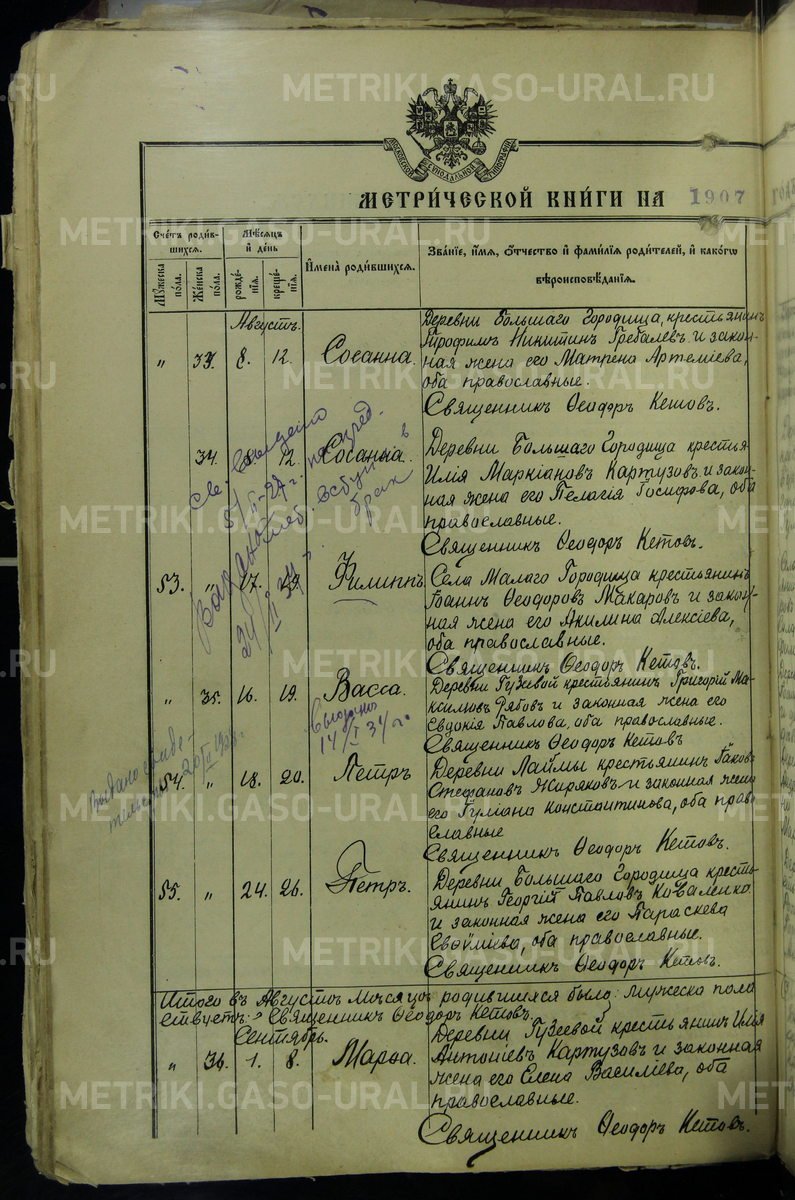 METRIKI.GASO-URAL.RU
МОСКОВСКОЙ СѴНОДАЛЬНОЙ ТИПОГРАФІИ
МЕТРИ́ЧЕСКОЙ КНИ́ГИ НА 1907 ГОДЪ
Сче́тъ роди́в-
шихся.
Мꙋ́жеска
по́ла.
Же́нска
по́ла.
Мѣ́сяцъ
и҆ де́нь
рожде́-
нїя.
креще́-
нїя.
И҆мена̀ роди́вшихся.
Зва́нїе, и҆́мя, ѻ҆́тчество и҆ фами́лїя роди́телей, и҆ како́гѡ
вѣроисповѣ́данїя.
Августъ.
„ 33. 8. 12. Сосанна.
Деревни Большаго Городища, крестьянинъ
Трофимъ Никитинъ Гребалевъ и закон-
ная жена его Матрена Артеміева,
оба православные.
Священникъ Ѳеодоръ Кетовъ.
34. 8. 12. Сосанна.
Деревни Большаго Городища крестья-
Илія Маркіановъ Картузовъ и закон-
ная жена его Пелагія Іосифова, оба
православные.
Священникъ Ѳеодоръ Кетовъ.
53. „ 17. 19. Филиппъ
Села Малаго Городища крестьянинъ
Іоаннъ Ѳеодоровъ Макаровъ и закон-
ная жена его Акилина Алексіева,
оба православные.
Священникъ Ѳеодоръ Кетовъ.
„ 35. 16. 19. Васса.
Деревни Гузеевой крестьянинъ Григорій Ма-
ксимовъ Рябовъ и законная жена его
Евдокія Павлова, оба православные.
Священникъ Ѳеодоръ Кетовъ
Выдано
14/I 34 г.
54. „ 18. 20. Петръ
Деревни Лаймы крестьянинъ Іаковъ
Стефановъ Жиряковъ и законная жена
его Іуліана Константинова, оба право-
славные
Священникъ Ѳеодоръ Кетовъ.
Выдано свиде-
тельство
55. „ 24. 26. Петръ.
Деревни Большаго Городища кресть-
янинъ Георгій Павловъ Коваленко
и законная жена его Параскева
оба православные.
Священникъ Ѳеодоръ Кетовъ.
Итого въ Августѣ мѣсяцѣ родившихся было: мужеска пола
Священникъ Ѳеодоръ Кетовъ.
Сентябрь.
„ 36. 1. 8. Марѳа.
Деревни Гузеевой крестьянинъ Илія
Антоніевъ Картузовъ и законная
жена его Елена Василіева, оба
православные.
Священникъ Ѳеодоръ Кетовъ.